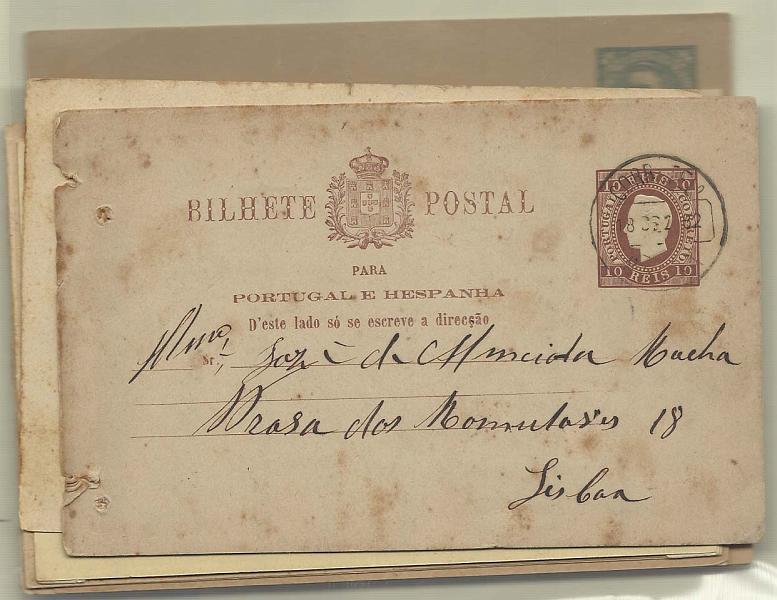 BILHETE POSTAL
PARA
PORTUGAL E HESPANHA
D'este lado só se escreve a direcção
10 10
PORTUGAL CORREIO
10 REIS 10
Illmo. Sr. José de Almeida Rocha
Prasa dos Romulares 18
Lisboa